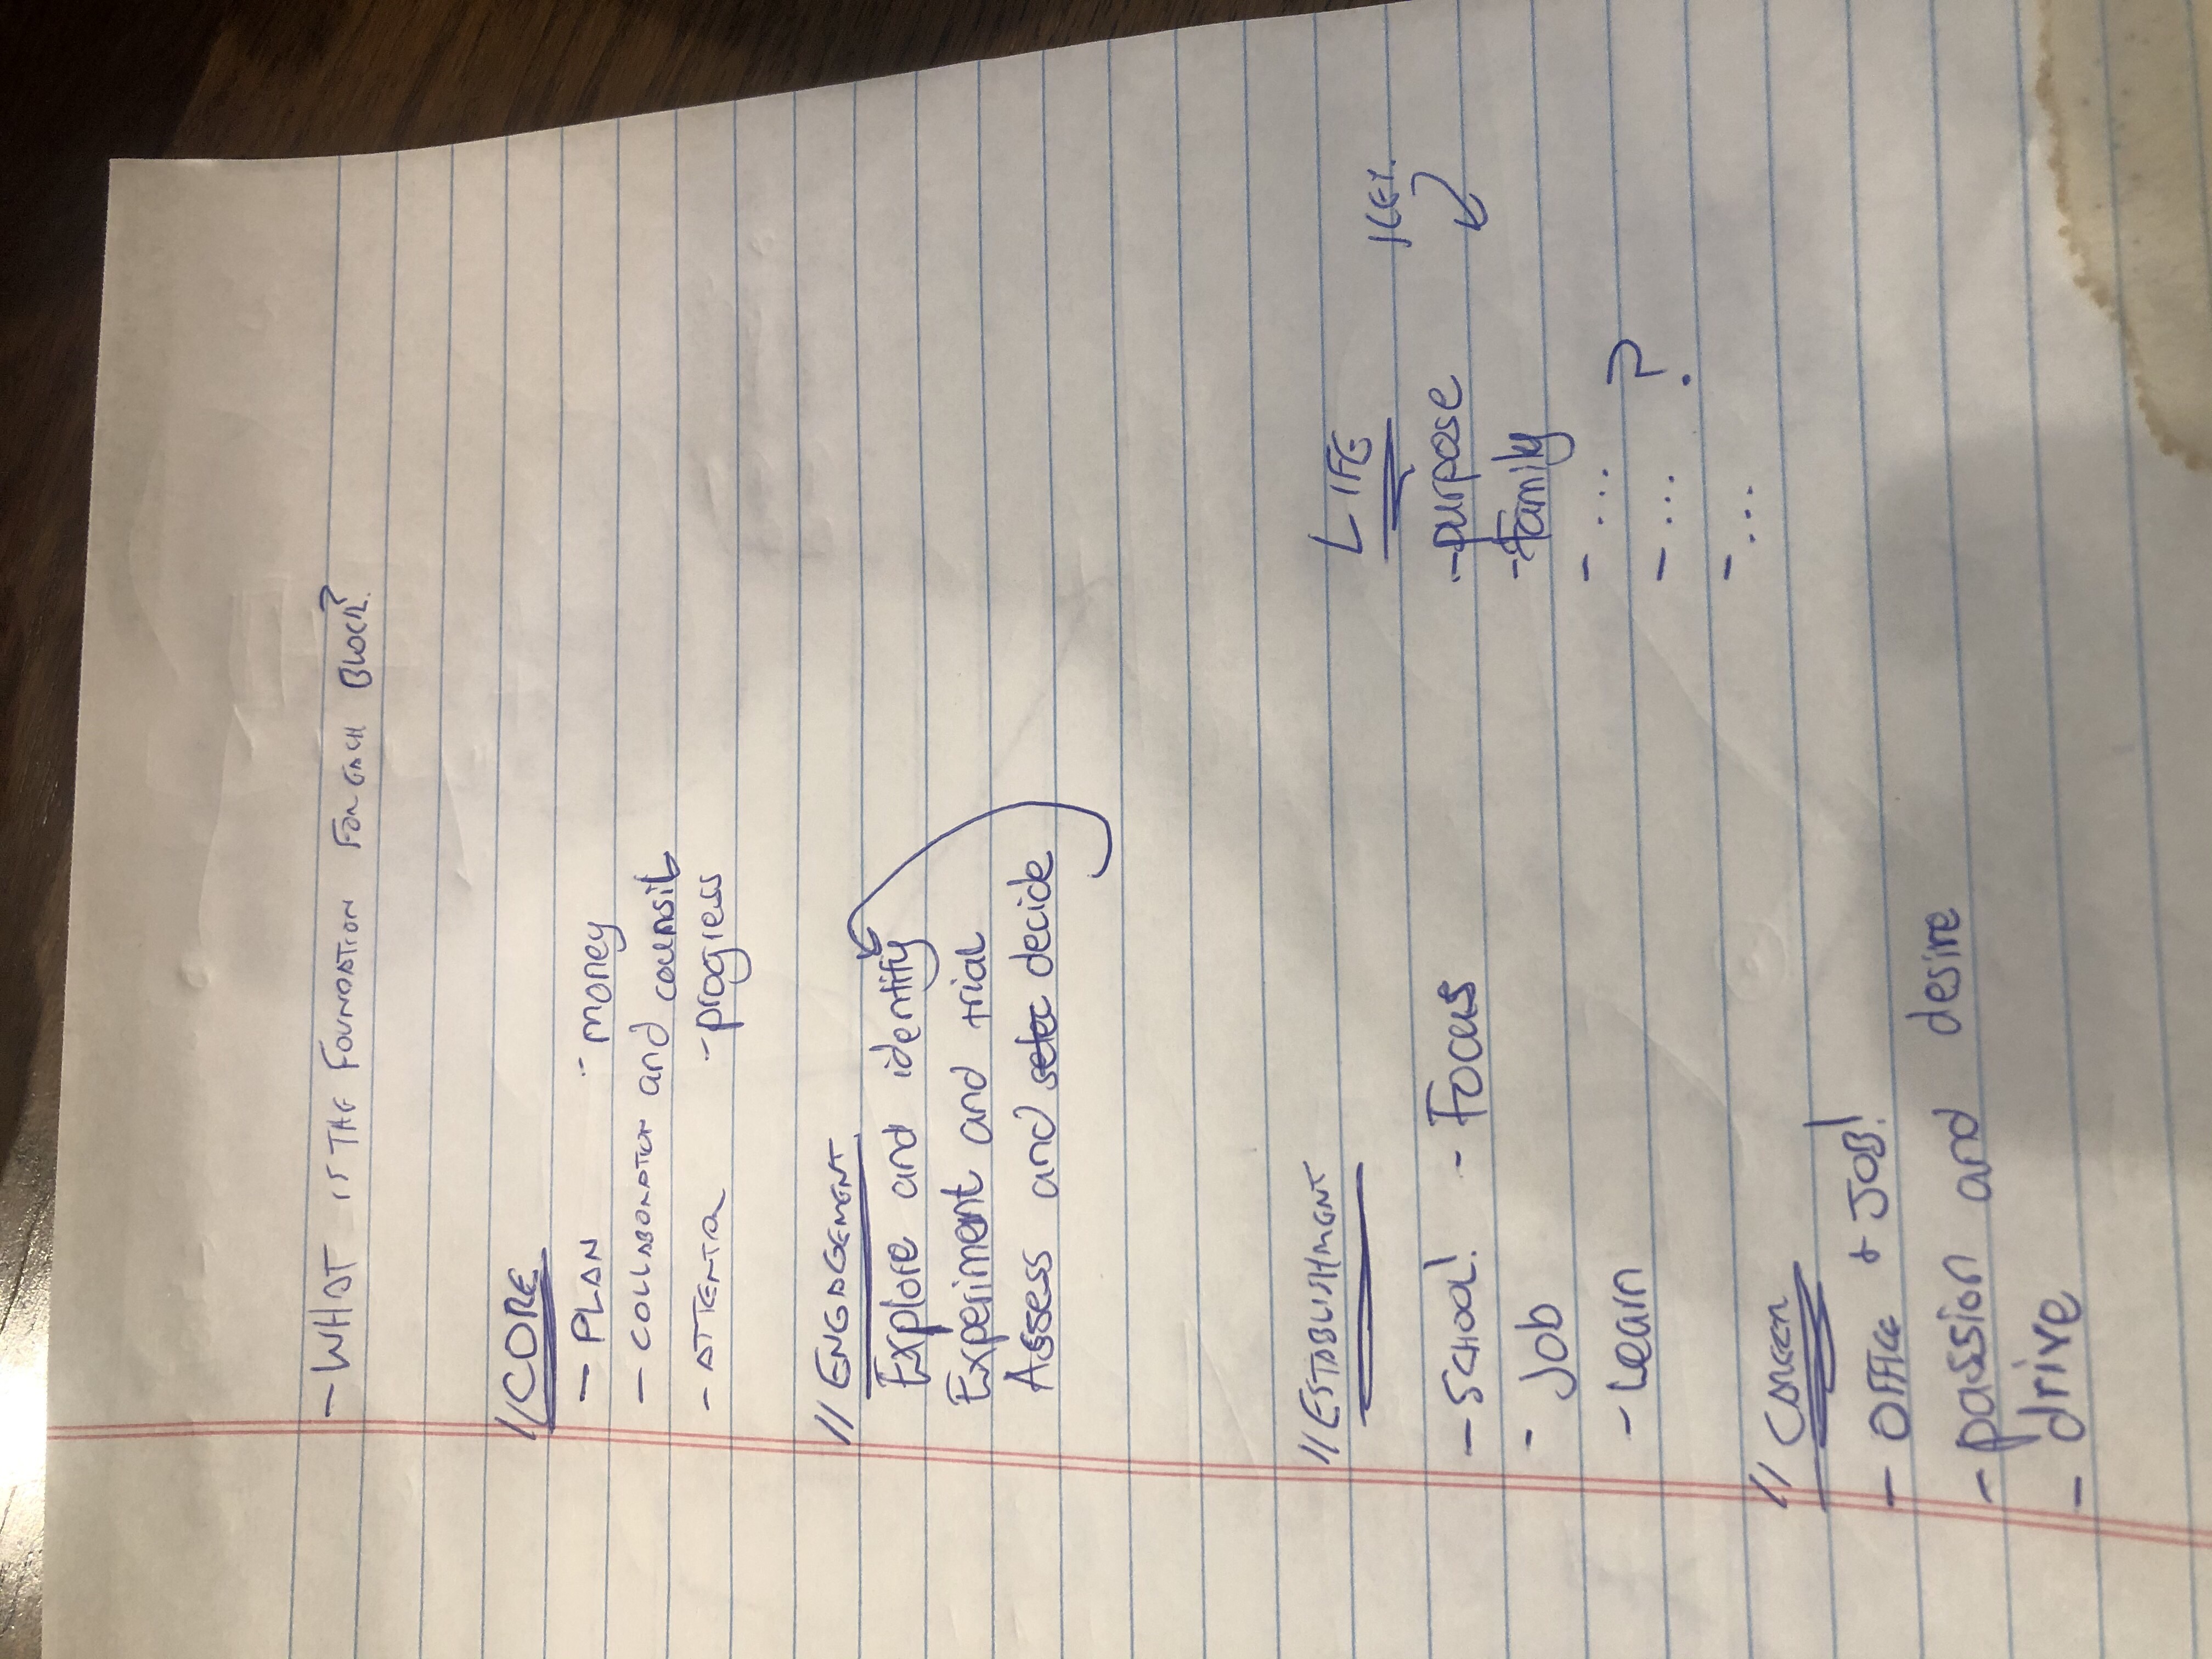 - WHAT IS THE FOUNDATION FOR EACH BLOCK?
// CORE
- PLAN - money
- COLLABORATION and counsil
- ATTENTION - progress
// ENGAGEMENT
Explore and identify
Experiment and trial
Assess and selec decide
// ESTABLISHMENT
- SCHOOL! - Focus
- Job
- Learn
LIFE
KEY.
- purpose
- Family
- ...
- ... ?
- ...
// CAREER
- OFFICE + JOB!
- passion and desire
- drive